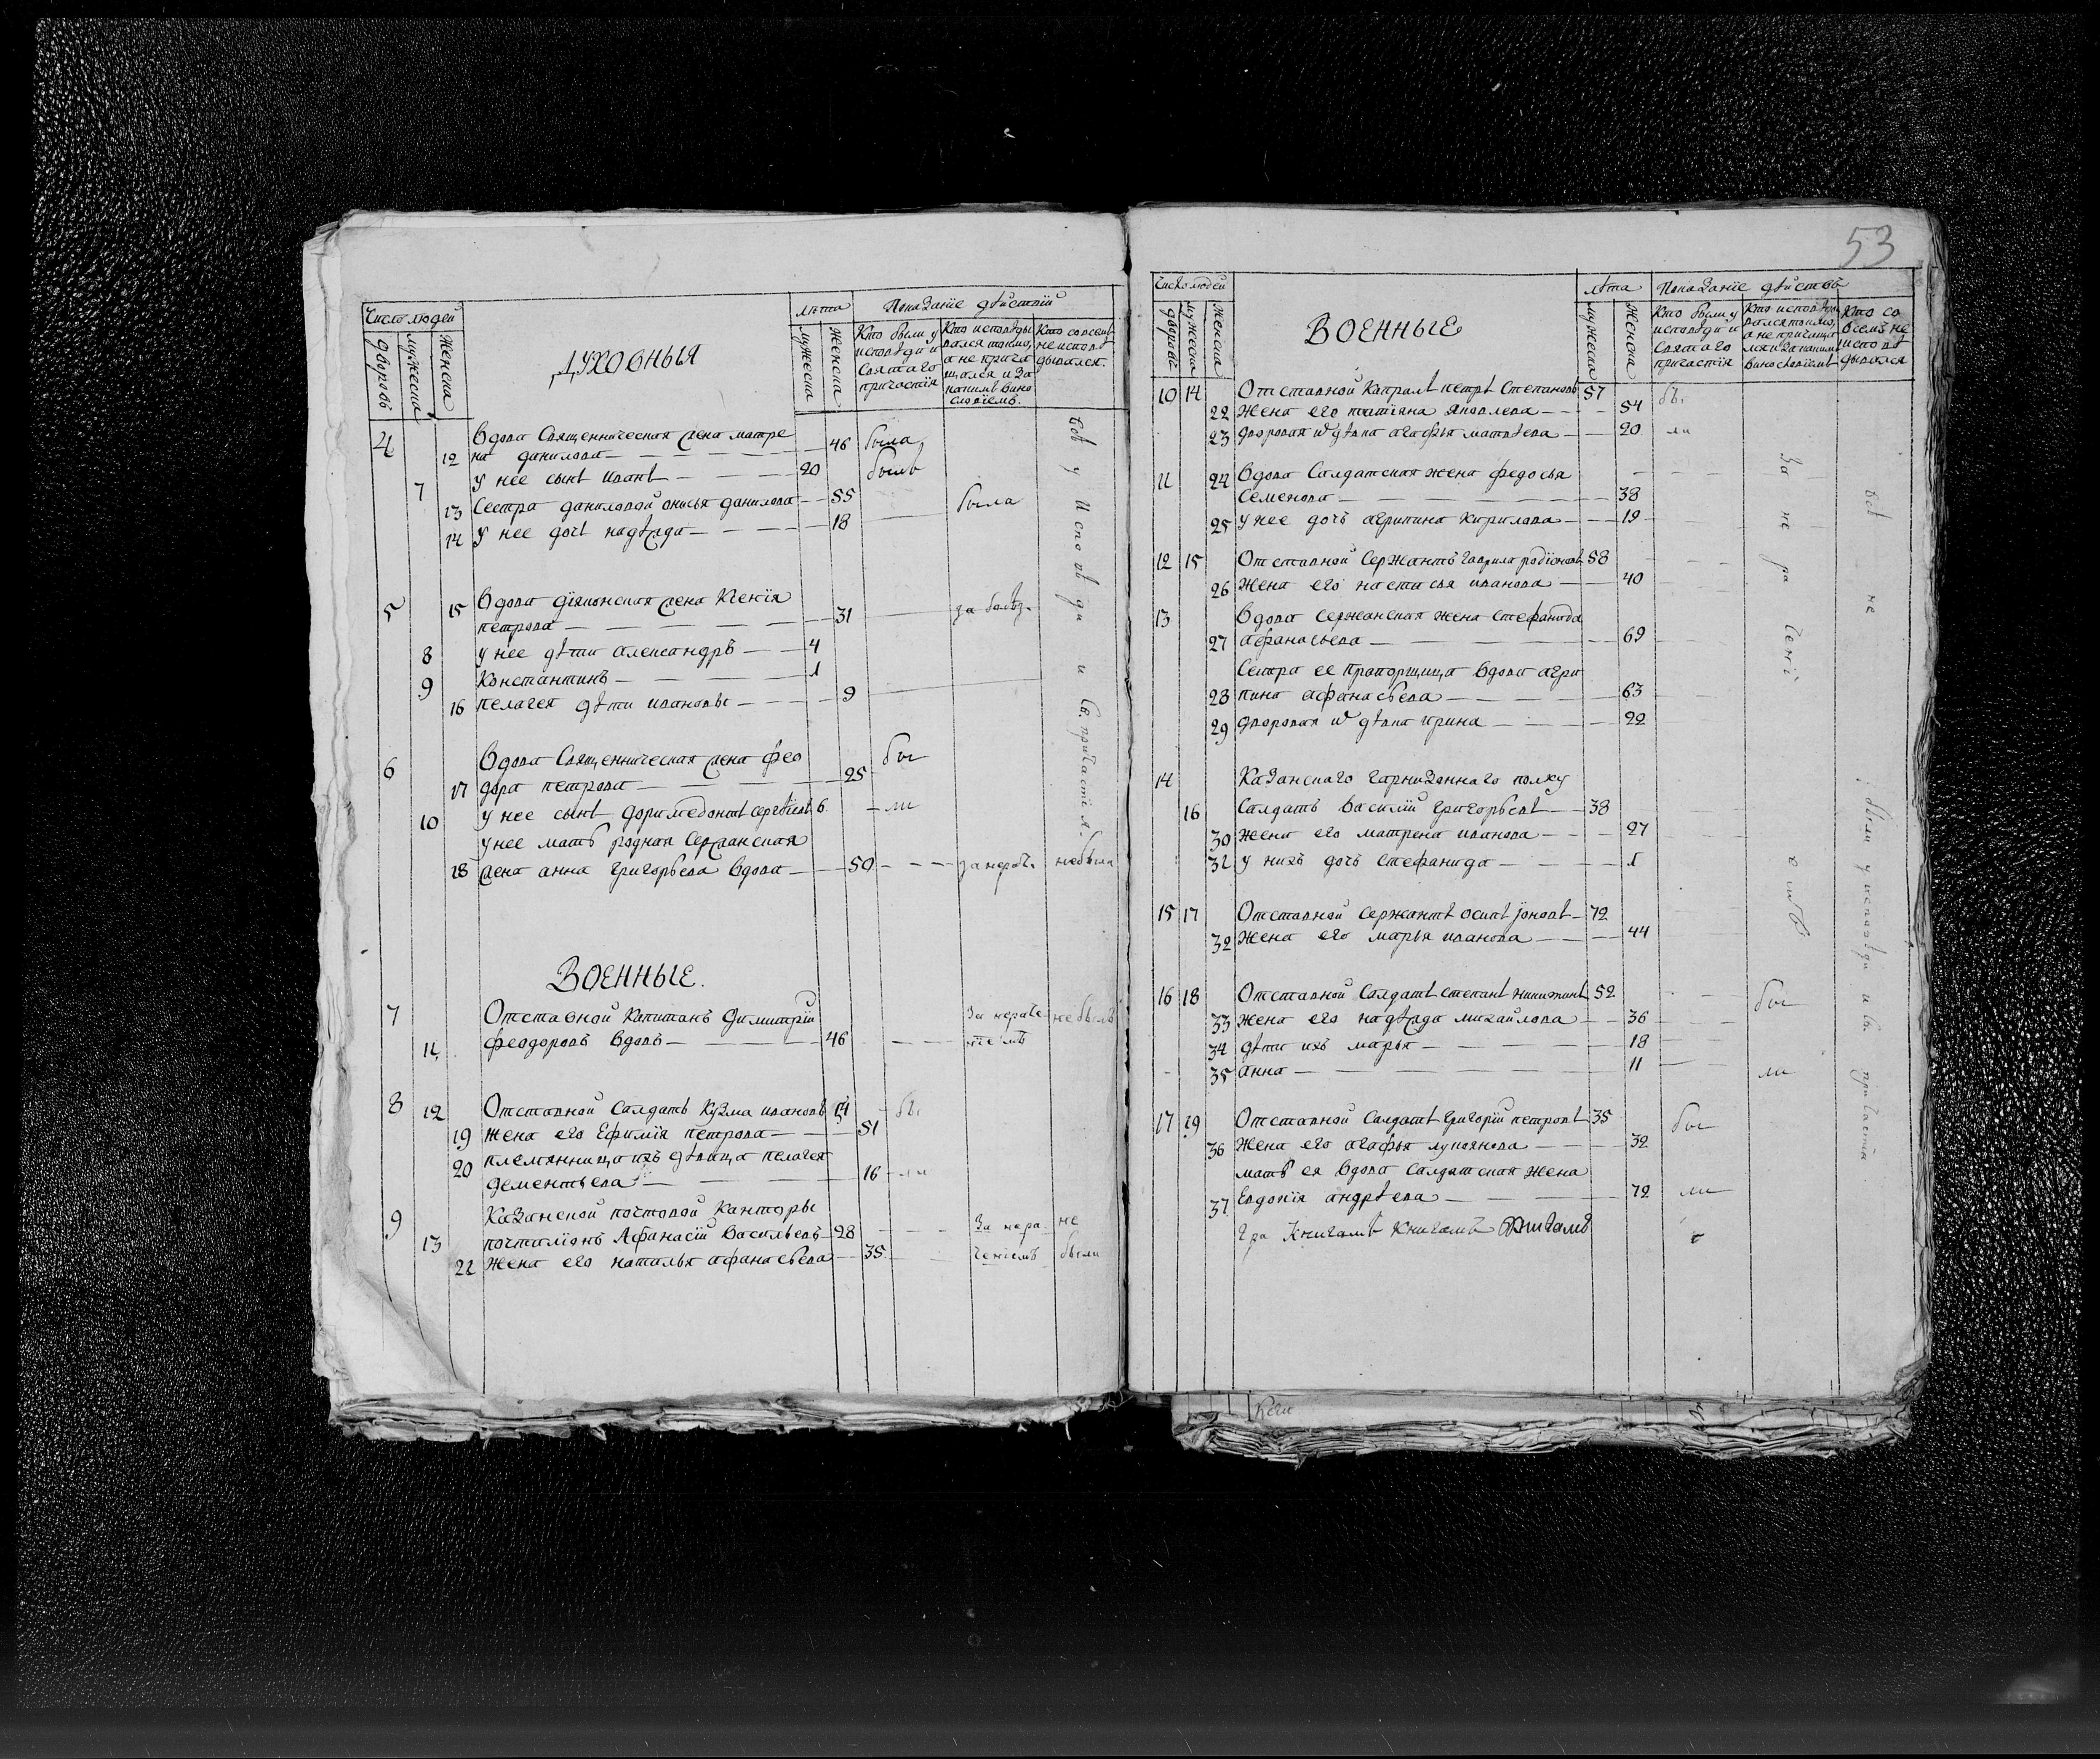 Число людей
дворовъ
мужеска
женска
ДУХОВНЫЯ
лѣта
мужеска
женска
Показание дѣйствий
Кто были у исповѣди и святаго причастия
Кто исповѣды вался токмо, а не прича щался и за какимъ вино словïемъ.
Кто совсемъ не исповѣ дывался.
4 Вдова Священническая жена матре
12 на данилова 46 была
7 у нее сынъ иванъ 20 былъ
13 Сестра даниловой анисья данилова 55 была
14 У нее дочь надѣжда 18
5 15 Вдова дïяконская жена Ксенïя
петрова 31 за болѣз.
8 у нее дѣти александръ 4
9 Константинъ 1
16 пелагея дѣти ивановы 9
6 Вдова Священническая жена фео бы
17 дора петрова 25
10 у нее сынъ доримедонтъ сергѣевъ 6 ли
у нее мать родная Сержанская
18 жена анна григорьева вдова 50 за нераче не была
всѣ у Исповѣди и Св. причастïя.
ВОЕННЫЕ.
7 Отставной Капитанъ Димитрïй За нераче не былъ
11 феодоровъ вдовъ 46 нïемъ
8 12 Отставной солдатъ Кузма ивановъ бы
19 жена его Ефимïя петрова 51
20 племянница ихъ дѣвица пелагея
дементьева 16 ли
9 Казанской почтовой Канторы
13 почталïонъ Афанасïй Васильевъ 28 За нера не
22 жена его наталья афанасьева 35 ченïемъ были
53
Число людей
дворовъ
мужеска
женска
ВОЕННЫЕ
лѣта
мужеска
женска
Показанïе дѣйствъ
Кто были у исповѣди и святаго причастïя
Кто исповѣды вался токмо, а не прича
Кто со всемъ не исповѣ дывался
10 14 Отставной Капралъ петръ Степановъ 57 бы
22 жена его татïяна яковлева 54
23 дворовая дѣвка агафья матвѣева 20 ли
11 24 Вдова Салдатская жена федосья
семенова 38
25 у нее дочь агрипина кирилова 19
12 15 Отставной Сержантъ гаврила родïоновъ 58
26 жена его настасья иванова 40
13 Вдова сержанская жена стефанида
27 афанасьева 69
Сестра ее Прапорщица вдова агри
28 пина афанасьева 63
29 дворовая дѣвка ирина 22
14 Казанскаго гарнизоннаго полку
16 Салдатъ василïй григорьевъ 38
30 жена его матрена иванова 27
31 у нихъ дочь стефанида 1
15 17 Отставной сержантъ осипъ ïоновъ 72
32 жена его марья иванова 44
16 18 Отставной Салдатъ степанъ никитинъ 52 бы
33 жена его надѣжда михайлова 36
34 дѣти ихъ марья 18
35 анна 11 ли
17 19 Отставной Салдатъ григорïй петровъ 35 бы
36 жена его агафья лукоянова 32
мать ея вдова салдатская жена
37 Евдокïя андрѣева 72 ли
За не ра ченï емъ
всѣ не были у исповѣди и св. причастïя